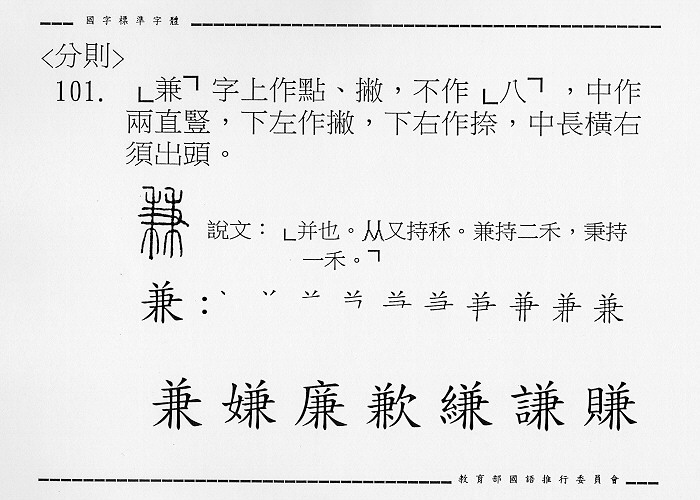 國字標準字體
<分則>
101. 「兼」字上作點、撇，不作「八」，中作
兩直豎，下左作撇，下右作捺，中長橫右
須出頭。
說文：「并也。从又持秝。兼持二禾，秉持
一禾。」
兼：
兼嫌廉歉縑謙賺
教育部國語推行委員會